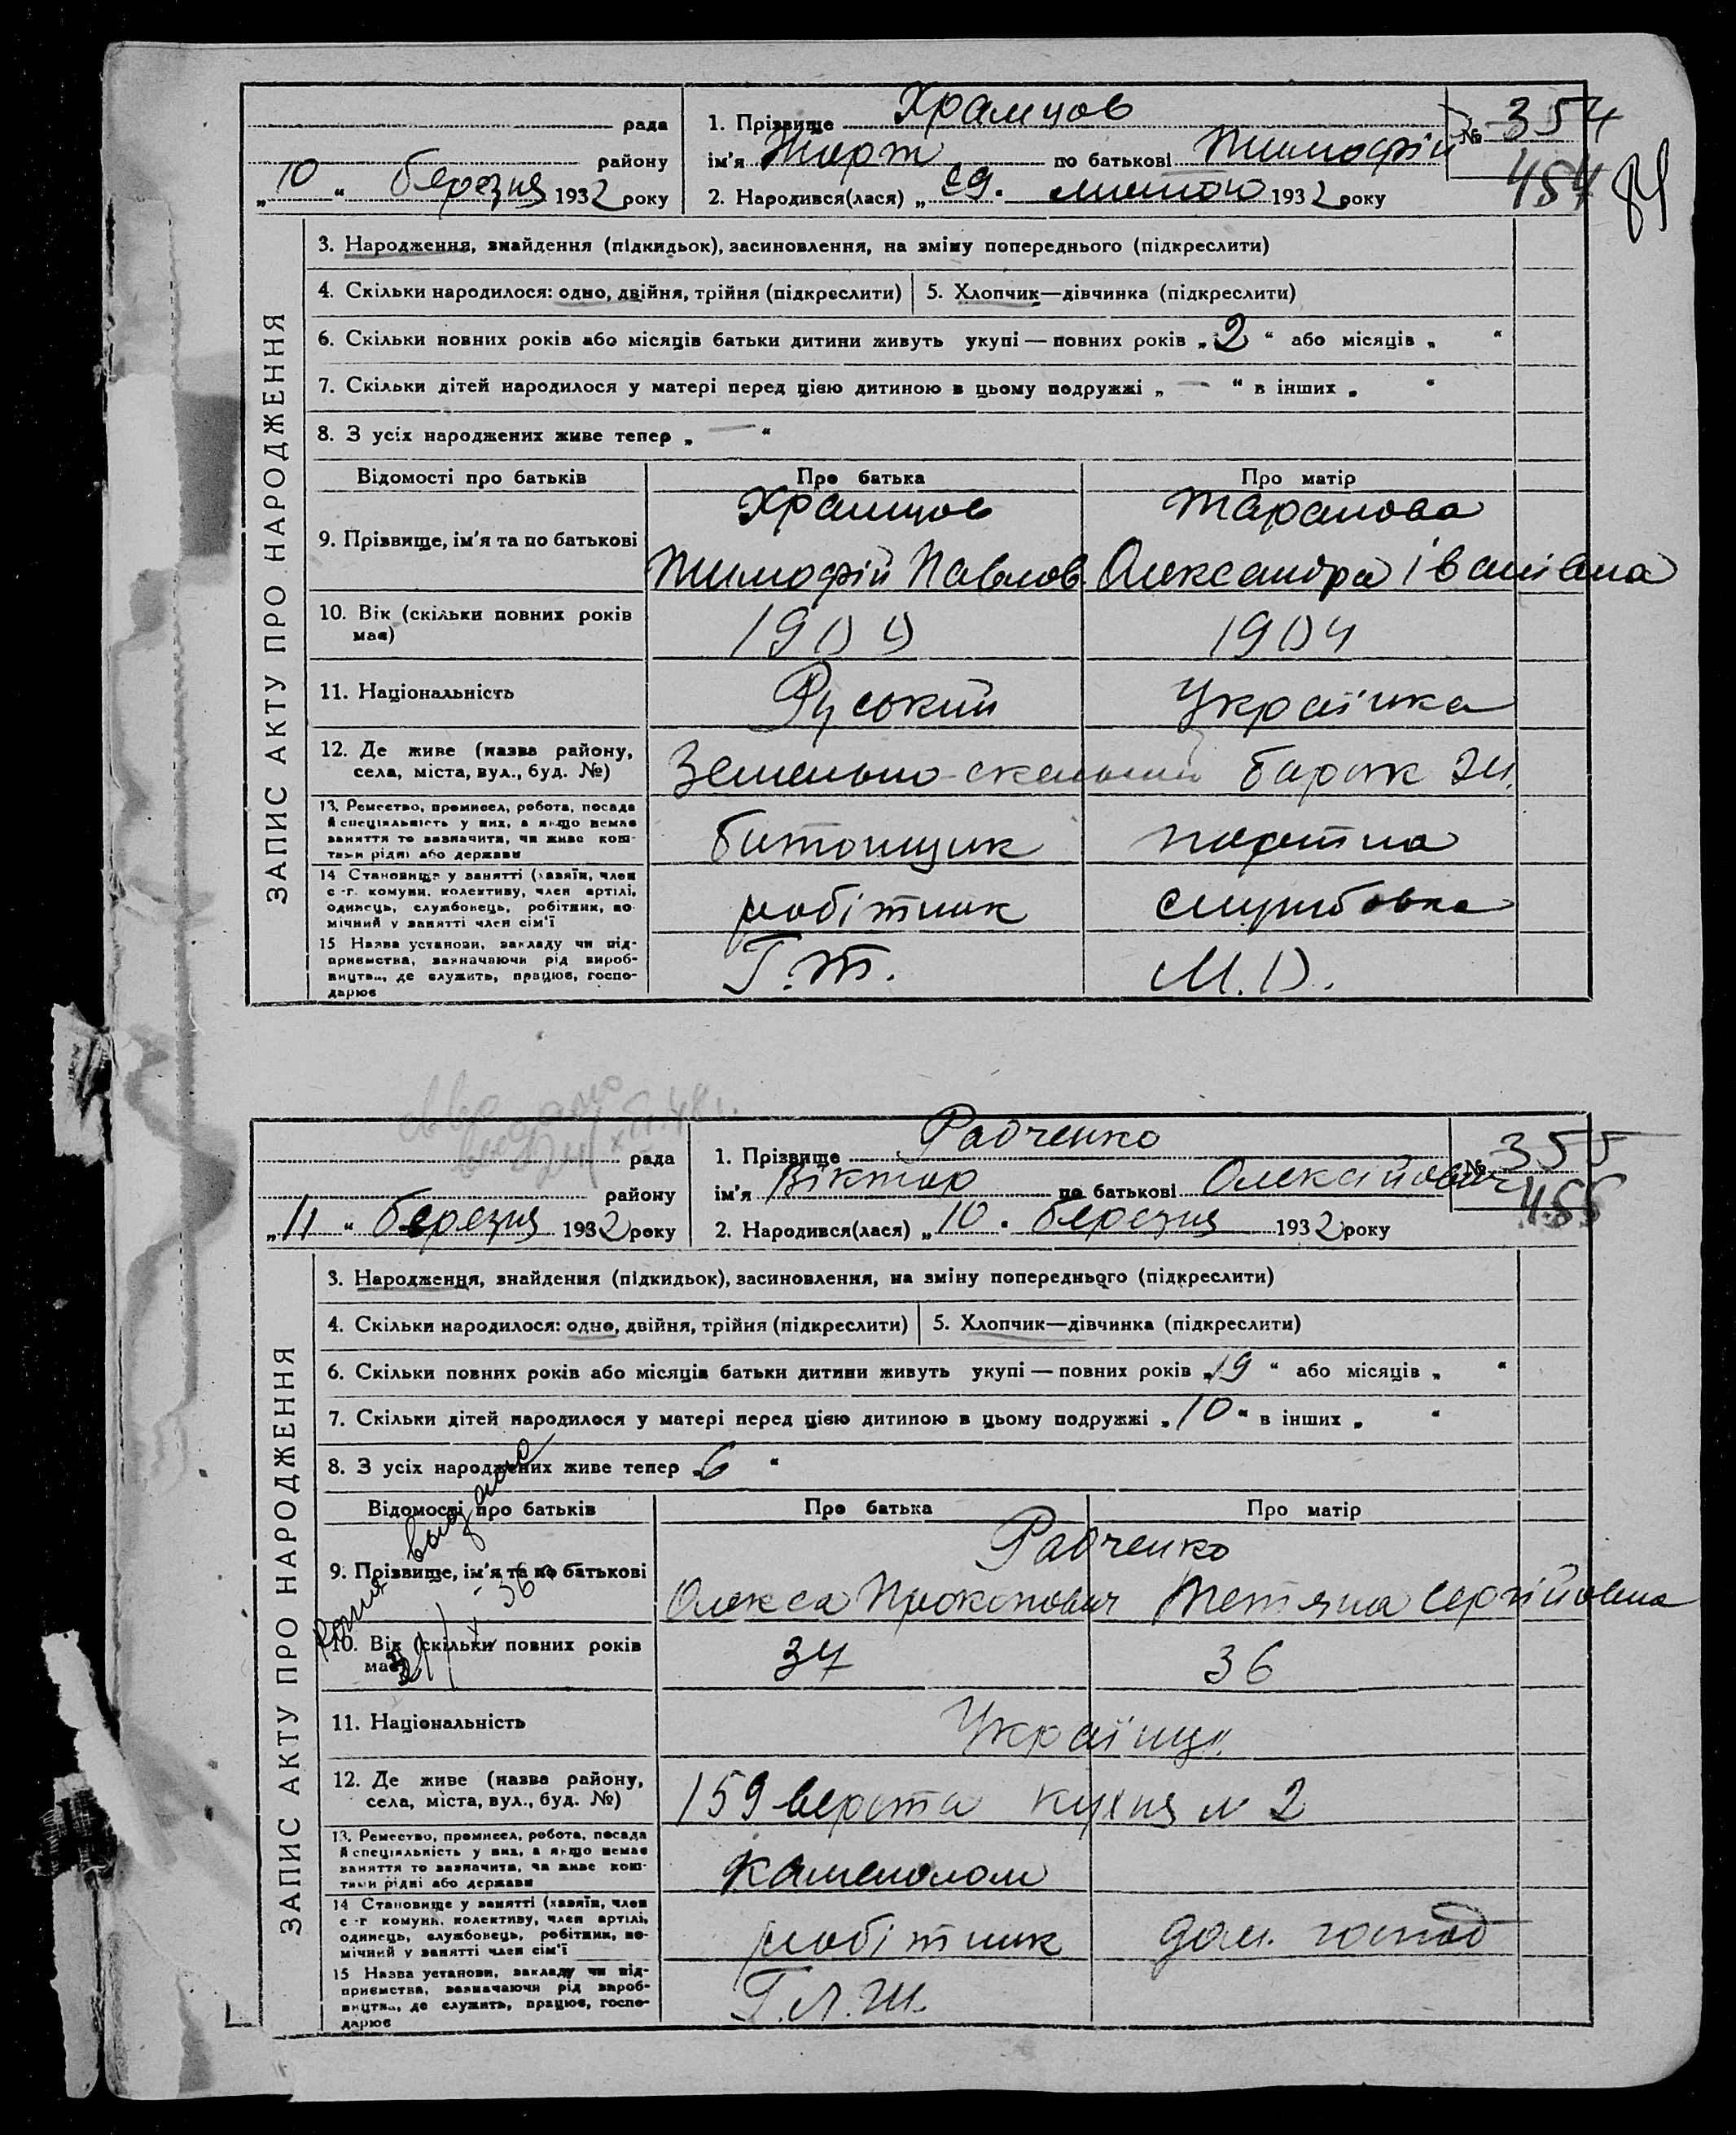 рада
району
„10“ березня 1932 року
1. Прізвище Храмцов
ім'я по батькові Тимофій
2. Народився(лася) „29“ лютого 1932 року
№ 354
454
84
ЗАПИС АКТУ ПРО НАРОДЖЕННЯ
3. Народження, знайдення (підкидьок), засиновлення, на зміну попереднього (підкреслити)
4. Скільки народилося: одно, двійня, трійня (підкреслити)
5. Хлопчик—дівчинка (підкреслити)
6. Скільки повних років або місяців батьки дитини живуть укупі — повних років „2“ або місяців „ “
7. Скільки дітей народилося у матері перед цією дитиною в цьому подружжі „—“ в інших „ “
8. З усіх народжених живе тепер „—“
Відомості про батьків Про батька Про матір
9. Прізвище, ім'я та по батькові
Храмцов Таранова
Тимофій Павлов. Олександра Іванівна
10. Вік (скільки повних років має)
1909 1904
11. Національність Руський Українка
12. Де живе (назва району, села, міста, вул., буд. №)
барак
13. Ремество, промисел, робота, посада й спеціяльність у них, а якщо немає заняття то зазначити, чи живе коштами рідні або держави
битонщик
14 Становище у занятті (хазяїн, член с-г. комуни, колективу, член артілі, одинець, службовець, робітник, помічний у занятті член сім'ї
робітник службовка
15 Назва установи, закладу чи підприємства, зазначаючи рід виробництва, де служить, працює, господарює
Г.Т. М.D.
рада
району
„11“ березня 1932 року
1. Прізвище Радченко
ім'я Віктор по батькові Олексійович
2. Народився(лася) „10“ березня 1932 року
№ 355
455
ЗАПИС АКТУ ПРО НАРОДЖЕННЯ
3. Народження, знайдення (підкидьок), засиновлення, на зміну попереднього (підкреслити)
4. Скільки народилося: одно, двійня, трійня (підкреслити)
5. Хлопчик—дівчинка (підкреслити)
6. Скільки повних років або місяців батьки дитини живуть укупі — повних років „19“ або місяців „ “
7. Скільки дітей народилося у матері перед цією дитиною в цьому подружжі „10“ в інших „ “
8. З усіх народжених живе тепер „6“
Відомості про батьків Про батька Про матір
9. Прізвище, ім'я та по батькові
Радченко
Олекса Прокопович Тетяна Сергійовна
10. Вік (скільки повних років має)
37 36
11. Національність Українці
12. Де живе (назва району, села, міста, вул., буд. №)
159 верста кухня № 2
13. Ремество, промисел, робота, посада й спеціяльність у них, а якщо немає заняття то зазначити, чи живе коштами рідні або держави
Каменолом
14 Становище у занятті (хазяїн, член с-г комуни, колективу, член артілі, одинець, службовець, робітник, помічний у занятті член сім'ї
робітник дом. господ
15 Назва установи, закладу чи підприємства, зазначаючи рід виробництва, де служить, працює, господарює